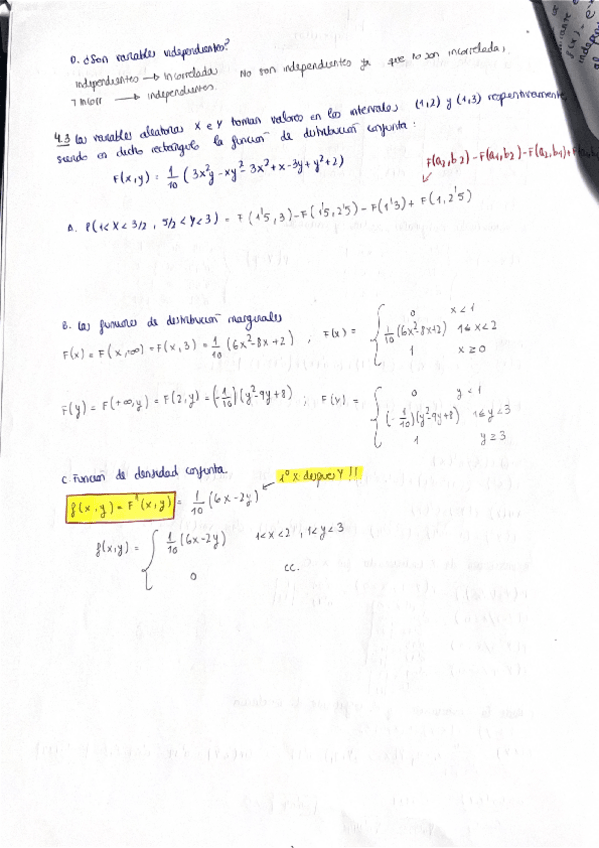 D. ¿Son variables independientes?
Independientes → Incorreladas
7 Incorr → independientes.
No son independientes ya que no son incorrelada,
4.3 Las variables aleatorias X e Y toman valores en los intervalos (1,2) y (1,3) respectivamente,
siendo en dicho rectangulo la funcion de distribucion conjunta:
F(x,y) = 1/10 (3x²y - xy² - 3x² + x - 3y + y² + 2)
F(a₂,b₂) - F(a₁,b₂) - F(a₂,b₁) + F(
A. P(1<X<3/2, 5/2<Y<3) = F(1'5,3) - F(1'5,2'5) - F(1'3) + F(1,2'5)
B. Las funciones de distribución marginales
F(x) = F(x,∞) = F(x,3) = 1/10 (6x²-8x+2) ; F(x) = { 0 x<1
1/10 (6x²-8x+2) 1≤x<2
1 x≥0
F(y) = F(+∞,y) = F(2,y) = (-1/10)(y²-9y+8) ; F(y) = { 0 y<1
(-1/10)(y²-9y+8) 1≤y<3
1 y≥3
C. Funcion de densidad conjunta.
1º X despues Y !!
f(x,y) = F'(x,y) = 1/10 (6x-2y)
f(x,y) = { 1/10 (6x-2y) 1<x<2, 1<y<3
0 cc.